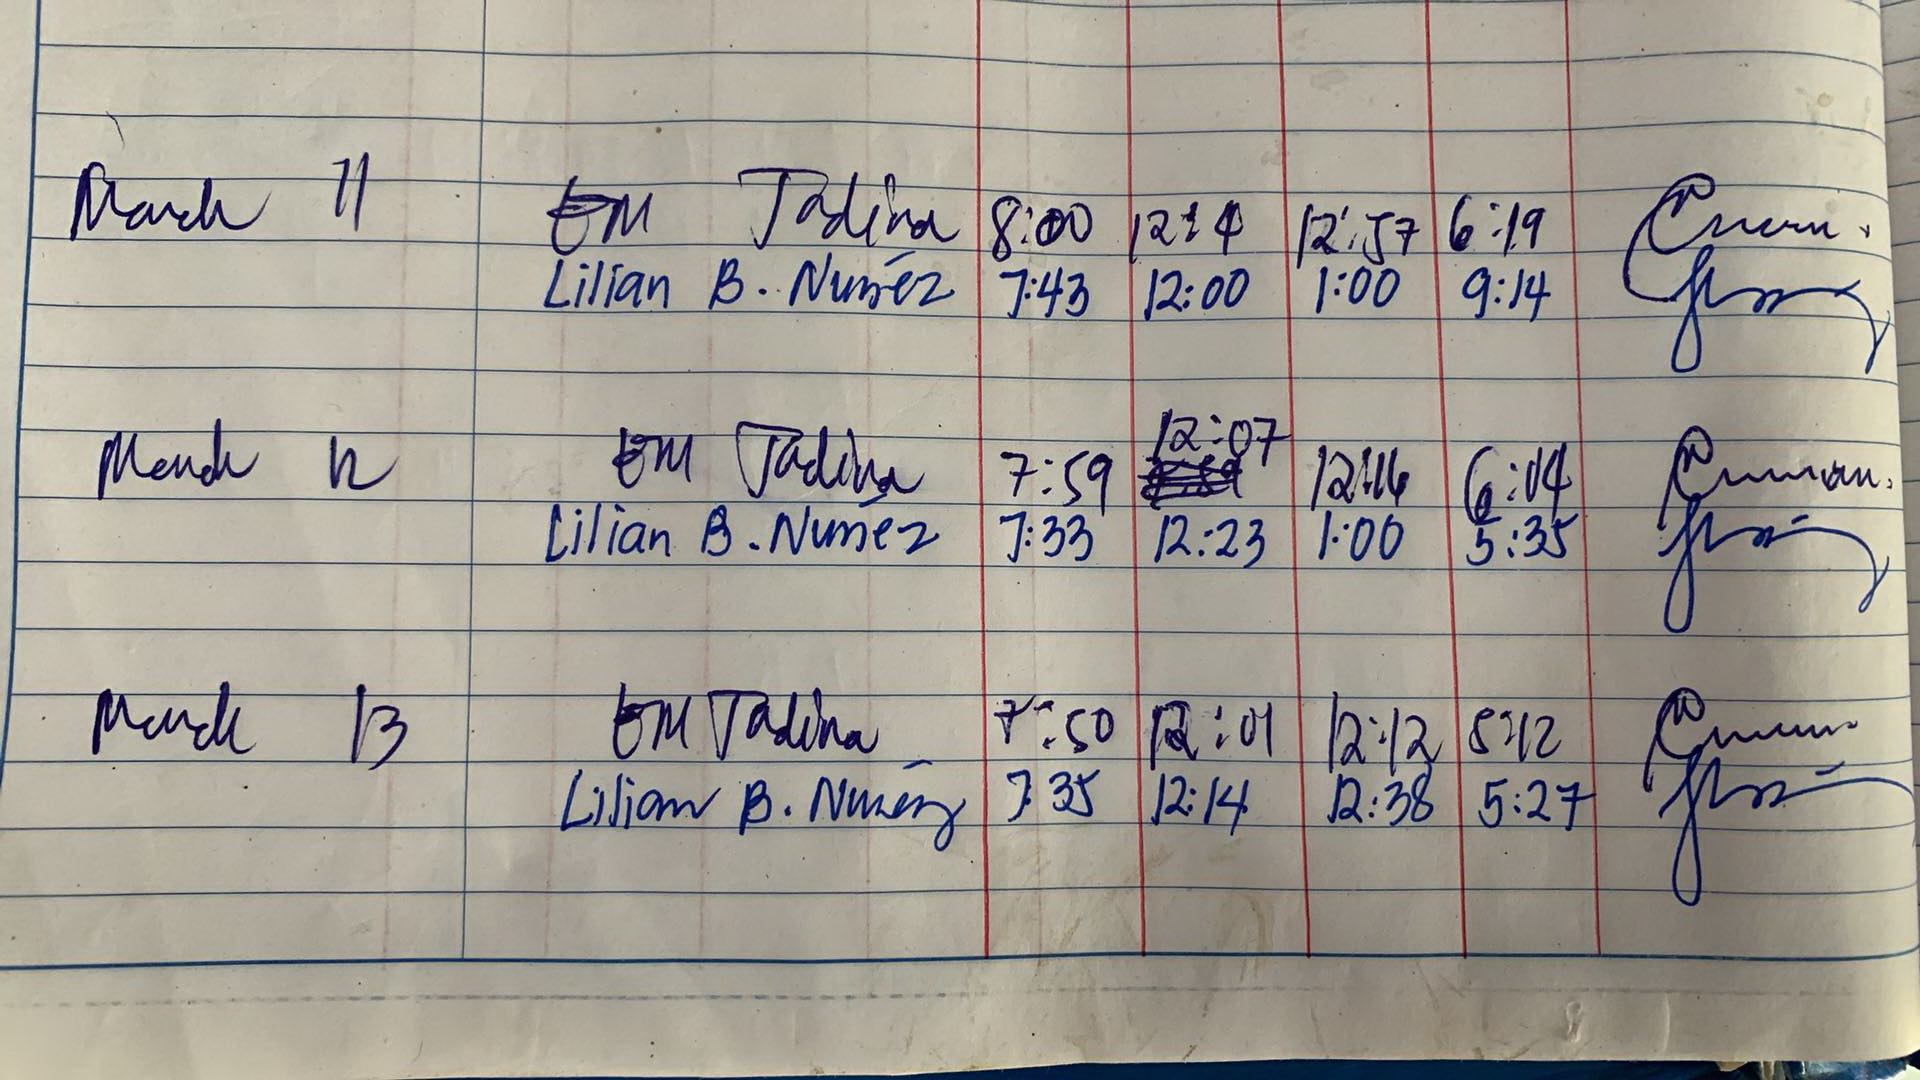 March 11 EM Tadina 8:00 12:57 6:19
Lilian B. Nuñez 7:43 12:00 1:00 9:14
March 12 EM Tadina 7:59 12:07 12:16 6:04
Lilian B. Nuñez 7:33 12:23 1:00 5:35
March 13 EM Tadina 7:50 12:01 12:12
Lilian B. Nuñez 7:35 12:14 12:38 5:27